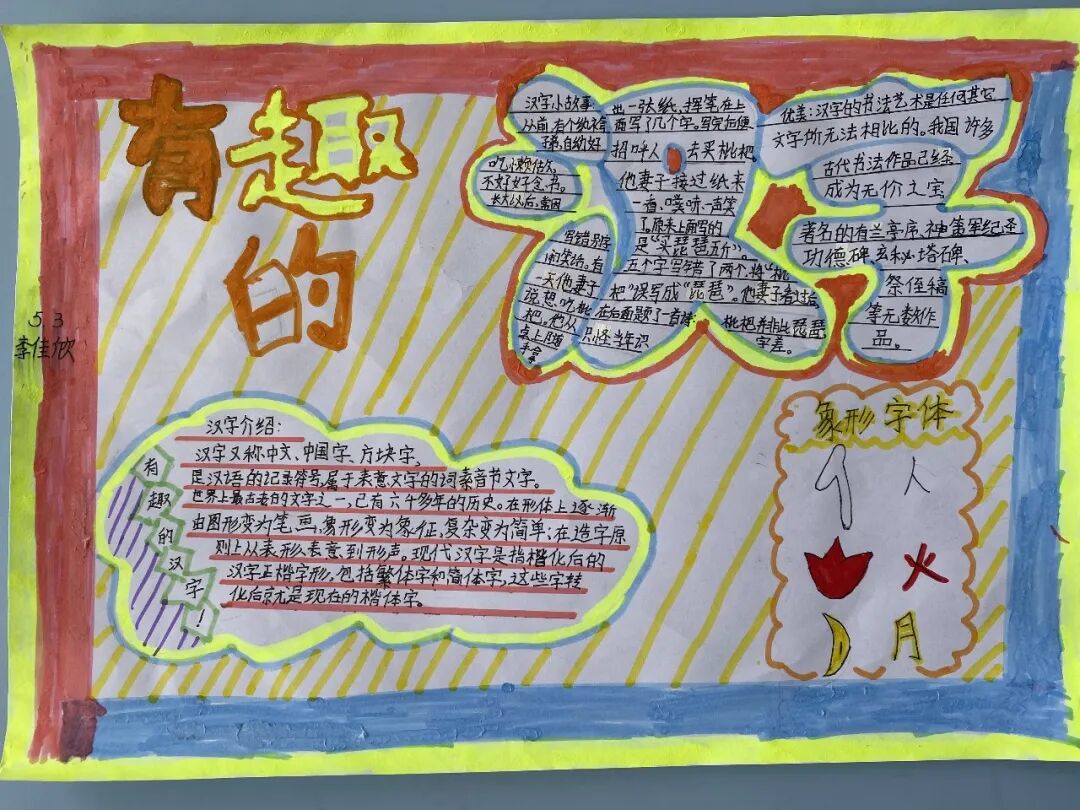 有趣的
汉字
5.3
李佳欣
汉字小故事:
从前,有个纨绔
子弟,自幼好
吃懒做,
不好好念书。
长大以后,常因
写错别字
闹笑话。有
一天他妻子
说,想吃枇
杷。他从
桌上随
手拿
出一张纸、挥笔在上
面写了几个字。写完后便
招呼人去买枇杷。
他妻子接过纸来
一看、噗哧一声笑
了。原来上面写的
是“买琵琶五斤”。
五个字写错了两个,将“枇
杷”误写成“琵琶”。他妻子看过后
在后面题了一首诗:枇杷并非此琵琶,
只怪当年识字差。
优美:汉字的书法艺术是任何其它
文字所无法相比的。我国许多
古代书法作品已经
成为无价之宝
著名的有兰亭序、神策军纪圣
功德碑、玄秘塔碑、
祭侄稿
等无数作
品。
汉字介绍:
汉字又称中文、中国字、方块字,
是汉语的记录符号,属于表意文字的词素音节文字。
世界上最古老的文字之一,已有六千多年的历史。在形体上逐渐
由图形变为笔画,象形变为象征,复杂变为简单;在造字原
则上从表形、表意到形声。现代汉字是指楷化后的
汉字正楷字形,包括繁体字和简体字,这些字转
化后就是现在的楷体字。
有趣的汉字!
象形字体
人
火
月